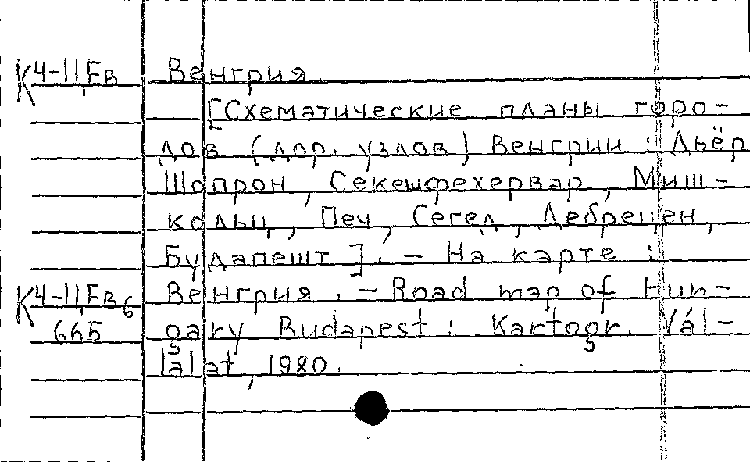 К4-11,Ев Венгрия
[Схематические планы горо-
дов (дор. узлов) Венгрии : Дьёр
Шопрон, Секешфехервар, Миш-
кольц, Печ, Сегед, Дебрецен,
Будапешт]. – На карте :
К4-11,Ев6 Венгрия. – Road map of Hun-
665 gary Budapest : Kartogr. Vál-
lalat, 1980.